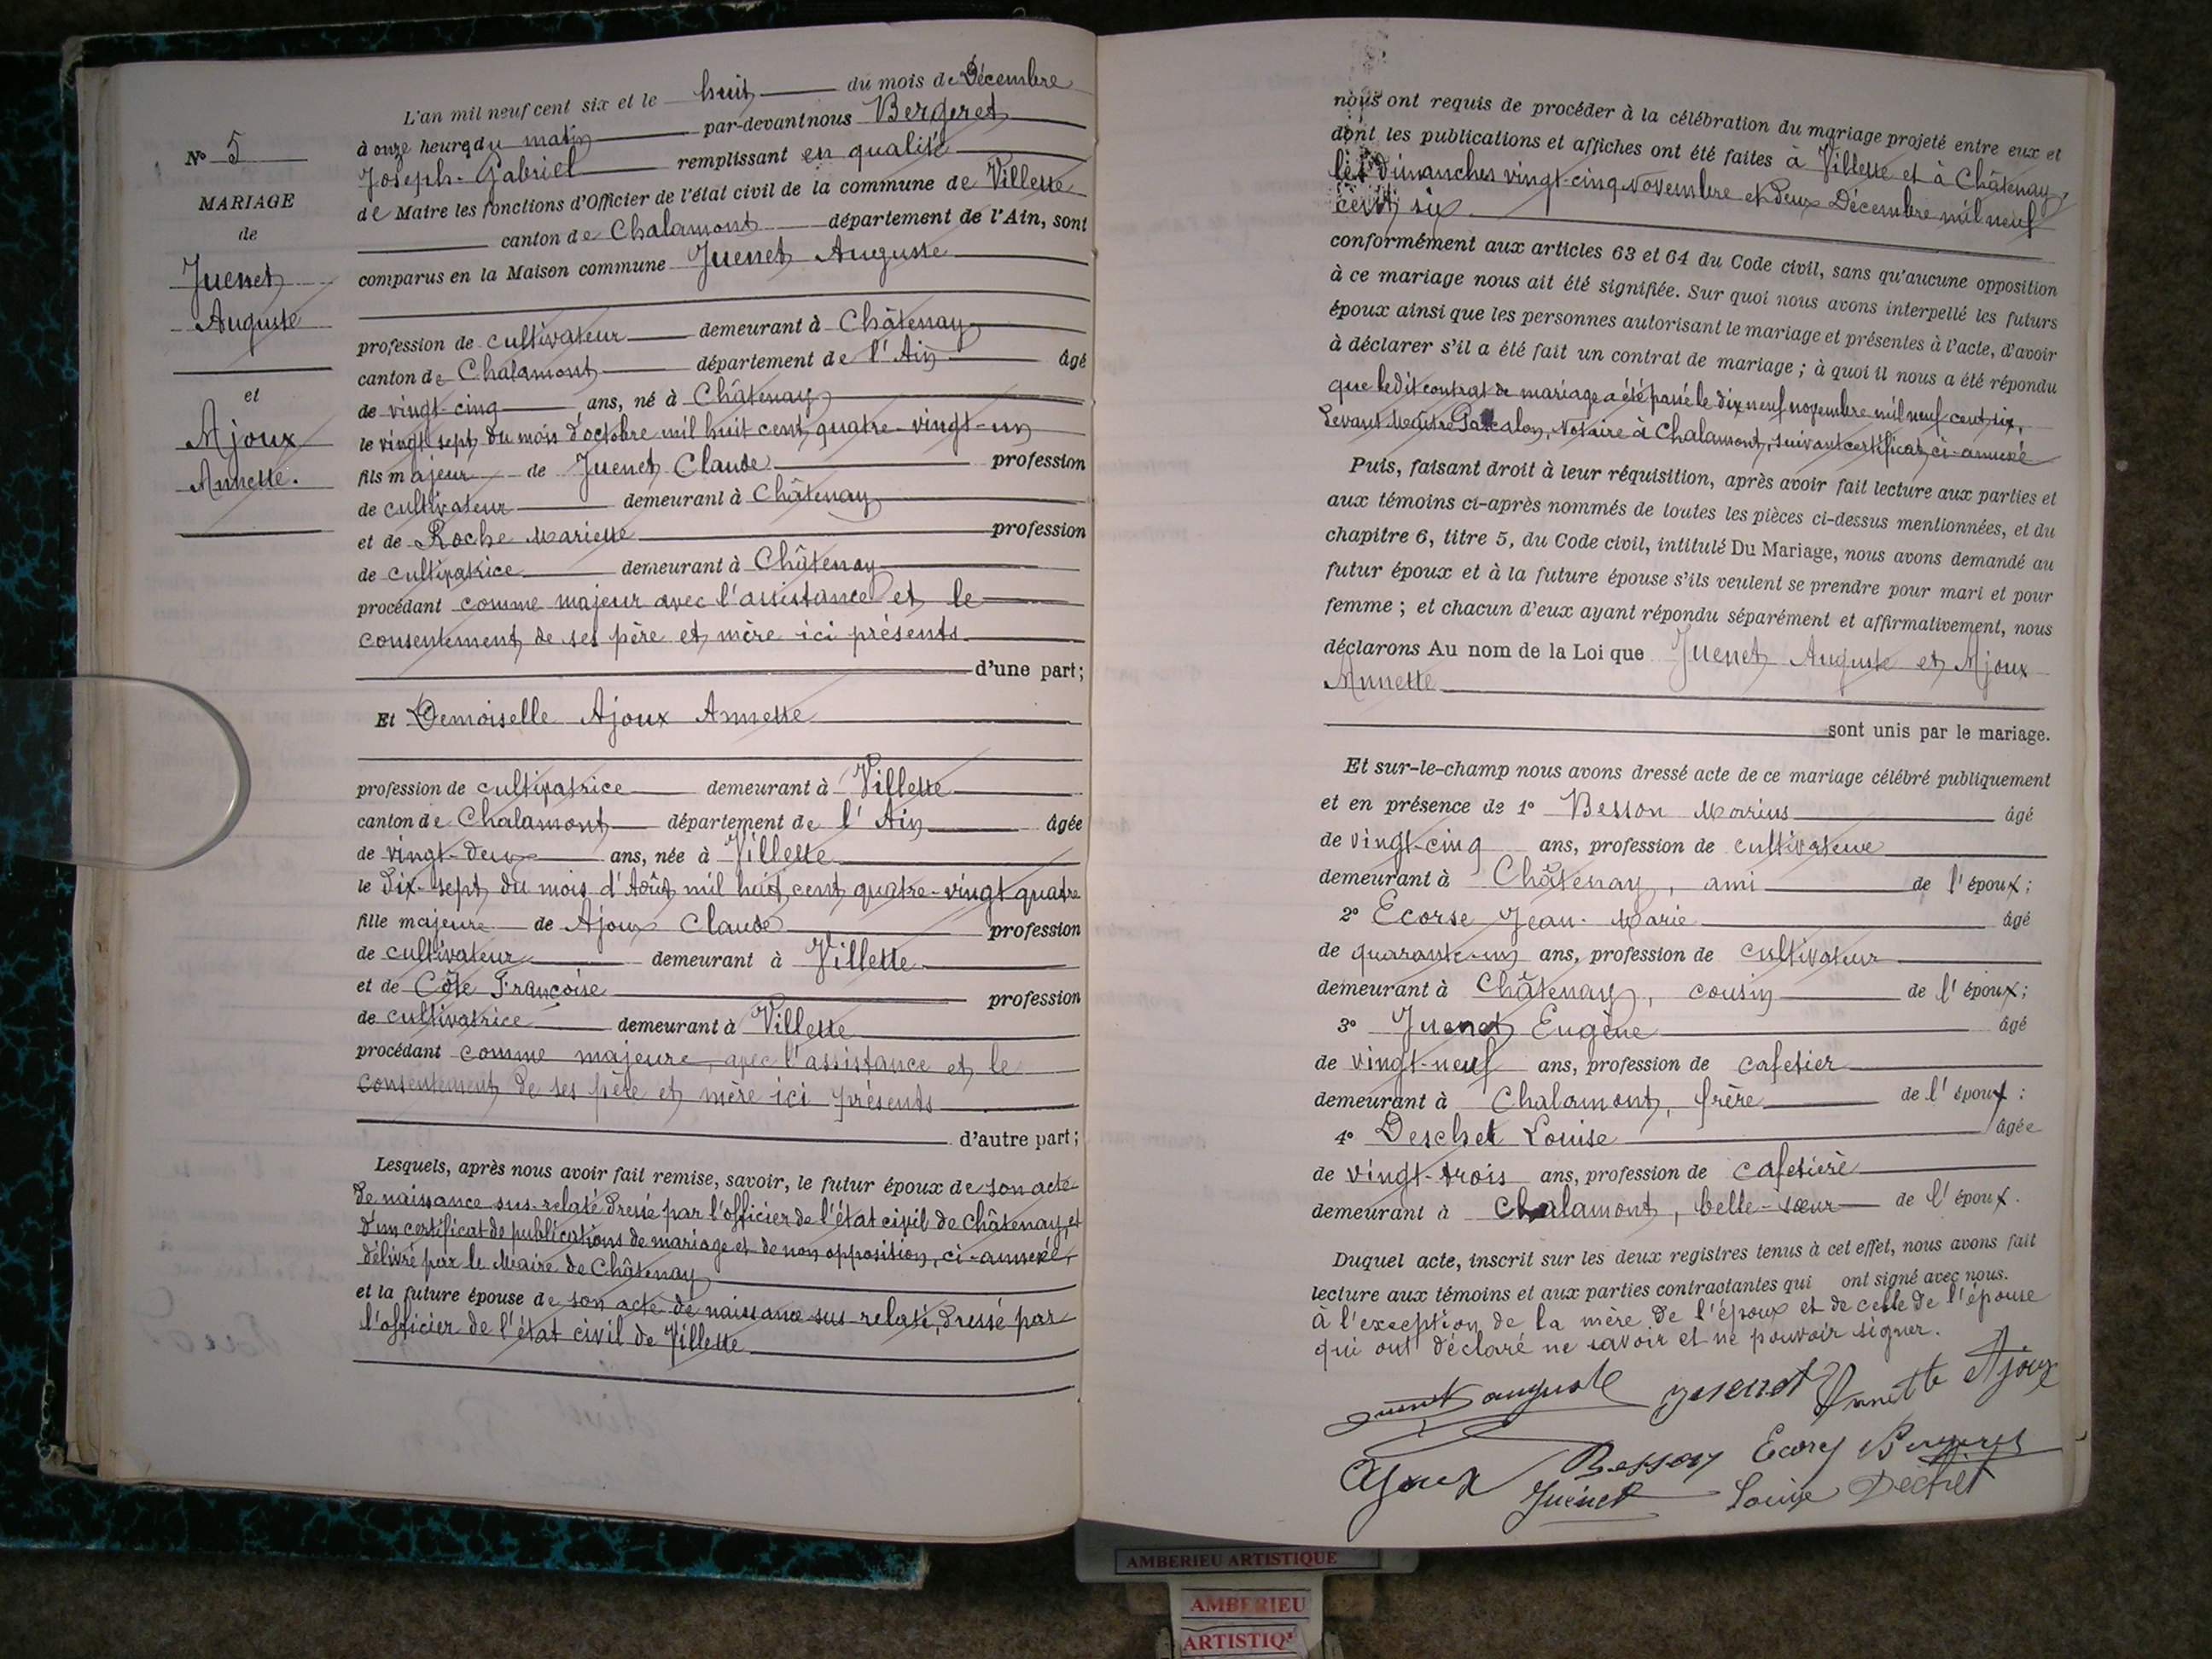 N° 5
MARIAGE
de
Juenet
Auguste
et
Ajoux
Annette.
L'an mil neuf cent six et le huit du mois de Décembre
à onze heures du matin par-devant nous Bergeret
Joseph-Gabriel remplissant en qualité
de Maire les fonctions d'Officier de l'état civil de la commune de Villette
canton de Chalamont département de l'Ain, sont
comparus en la Maison commune Juenet Auguste
profession de cultivateur demeurant à Châtenay
canton de Chalamont département de l'Ain âgé
de vingt-cinq ans, né à Châtenay
le vingt-sept du mois d'octobre mil huit cent quatre-vingt-un
fils majeur de Juenet Claude profession
de cultivateur demeurant à Châtenay
et de Roche Mariette profession
de cultivatrice demeurant à Châtenay
procédant comme majeur avec l'assistance et le
consentement de ses père et mère ici présents
d'une part;
Et Demoiselle Ajoux Annette
profession de cultivatrice demeurant à Villette
canton de Chalamont département de l'Ain âgée
de vingt-deux ans, née à Villette
le dix-sept du mois d'Août mil huit cent quatre-vingt-quatre
fille majeure de Ajoux Claude profession
de cultivateur demeurant à Villette
et de Côte Françoise profession
de cultivatrice demeurant à Villette
procédant comme majeure, avec l'assistance et le
consentement de ses père et mère ici présents
d'autre part;
Lesquels, après nous avoir fait remise, savoir, le futur époux de son acte
de naissance sus-relaté dressé par l'officier de l'état civil de Châtenay, et
d'un certificat de publications de mariage et de non opposition, ci-annexé,
délivré par le Maire de Châtenay
et la future épouse de son acte de naissance sus-relaté, dressé par
l'officier de l'état civil de Villette
nous ont requis de procéder à la célébration du mariage projeté entre eux et
dont les publications et affiches ont été faites à Villette et à Châtenay,
les Dimanches vingt-cinq Novembre et deux Décembre mil neuf
cent six
conformément aux articles 63 et 64 du Code civil, sans qu'aucune opposition
à ce mariage nous ait été signifiée. Sur quoi nous avons interpellé les futurs
époux ainsi que les personnes autorisant le mariage et présentes à l'acte, d'avoir
à déclarer s'il a été fait un contrat de mariage; à quoi il nous a été répondu
que ledit contrat de mariage a été passé le dix neuf novembre mil neuf cent six,
devant Maître Pascalon, Notaire à Chalamont, suivant certificat ci-annexé
Puis, faisant droit à leur réquisition, après avoir fait lecture aux parties et
aux témoins ci-après nommés de toutes les pièces ci-dessus mentionnées, et du
chapitre 6, titre 5, du Code civil, intitulé Du Mariage, nous avons demandé au
futur époux et à la future épouse s'ils veulent se prendre pour mari et pour
femme; et chacun d'eux ayant répondu séparément et affirmativement, nous
déclarons Au nom de la Loi que Juenet Auguste et Ajoux
Annette
sont unis par le mariage.
Et sur-le-champ nous avons dressé acte de ce mariage célébré publiquement
et en présence de 1° Besson Marius âgé
de vingt-cinq ans, profession de cultivateur
demeurant à Châtenay, ami de l'époux;
2° Ecorse Jean-Marie âgé
de quarante-un ans, profession de cultivateur
demeurant à Châtenay, cousin de l'époux;
3° Juenet Eugène âgé
de vingt-neuf ans, profession de cafetier
demeurant à Chalamont, frère de l'époux:
4° Deschet Louise âgée
de vingt-trois ans, profession de cafetière
demeurant à Chalamont, belle-sœur de l'époux.
Duquel acte, inscrit sur les deux registres tenus à cet effet, nous avons fait
lecture aux témoins et aux parties contractantes qui ont signé avec nous.
à l'exception de la mère de l'époux et de celle de l'épouse
qui ont déclaré ne savoir et ne pouvoir signer.
Juenet auguste Juenet Annette Ajoux
Ajoux Besson Bergeret
Juenet Louise Dechet
AMBERIEU ARTISTIQUE
AMBERIEU
ARTISTIQ